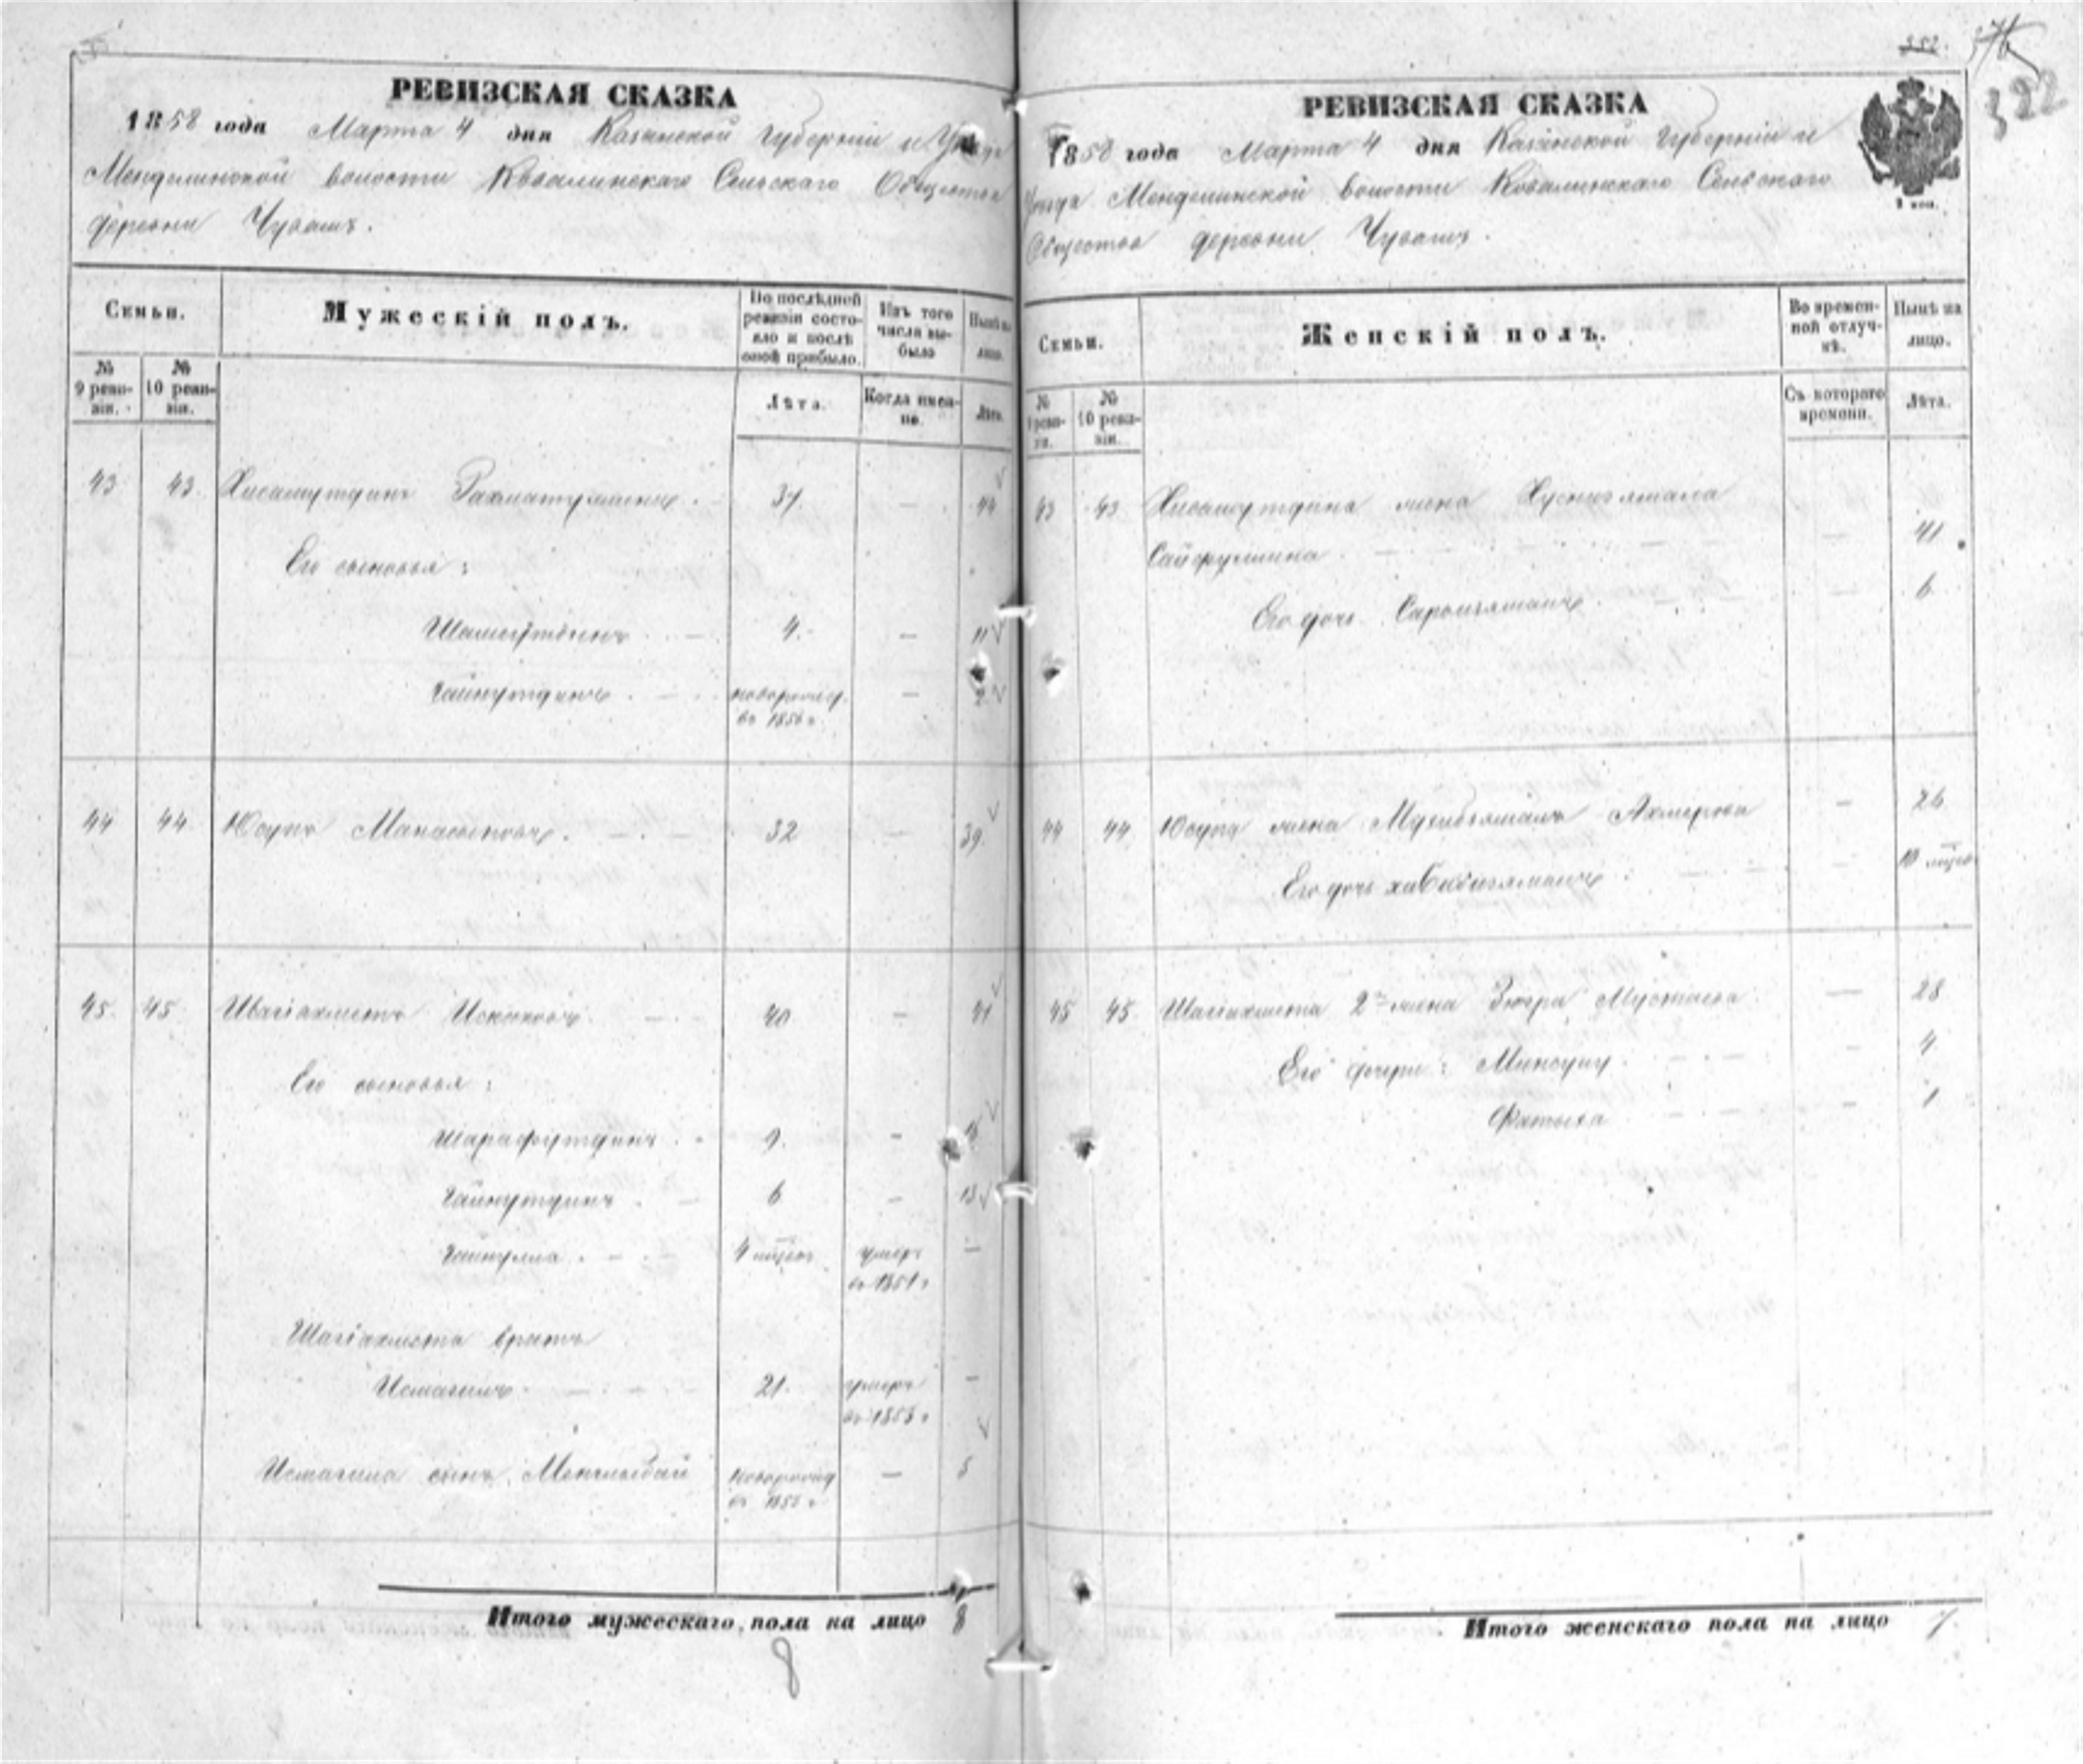 РЕВИЗСКАЯ СКАЗКА
1858 года Марта 4 дня Казанской Губернии и Уезда
Менделинской волости Ковалинскаго Сельскаго Общества
деревни Чувашъ.
Семьи.
Мужескій полъ.
По послѣдней ревизіи состояло и послѣ оной прибыло.
Изъ того числа выбыло
Нынѣ на лицо.
№ 9 ревизіи.
№ 10 ревизіи.
Лѣта.
Когда именно.
Лѣта.
43 43 Хисамутдинъ Рахматуллинъ. 37. — 44
Его сыновья:
Шамсутдинъ 4. — 11
Гайнутдинъ новорожд. — 2
въ 1856 г.
44 44 Юсупъ Манасыповъ. 32 — 39
45. 45 Шагіахметъ Исхаковъ 40 — 47
Его сыновья:
Шарафутдинъ 9. — 16
Гайнутдинъ 6 — 13
Гайнулла 4 мѣсяц. умеръ —
въ 1851 г
Шагіахмета братъ
Исмагилъ 21. умеръ —
въ 1853 г
Исмагила сынъ Менглыбай новорожд — 5
въ 1853 г
Итого мужескаго пола на лицо 8
8
322
РЕВИЗСКАЯ СКАЗКА
1858 года Марта 4 дня Казанской Губернии и
Уезда Менделинской волости Ковалинскаго Сельскаго
Общества деревни Чувашъ.
Семьи.
Женскій полъ.
Во временной отлучкѣ.
Нынѣ на лицо.
№ 9 ревизіи.
№ 10 ревизіи.
Съ котораго времени.
Лѣта.
43 43 Хисамутдина жена Хуснизямала
Сайфуллина — 41
Его дочь — 6
44 44 Юсупа жена Ахмерова — 26
Его дочь Хабибизяманъ — 10 мѣсяц.
45 45 Шагіахмета 2я жена Зюгра Мустаева — 28
Его дочери: Минсулу — 4
Фатыха — 1
Итого женскаго пола на лицо 7.